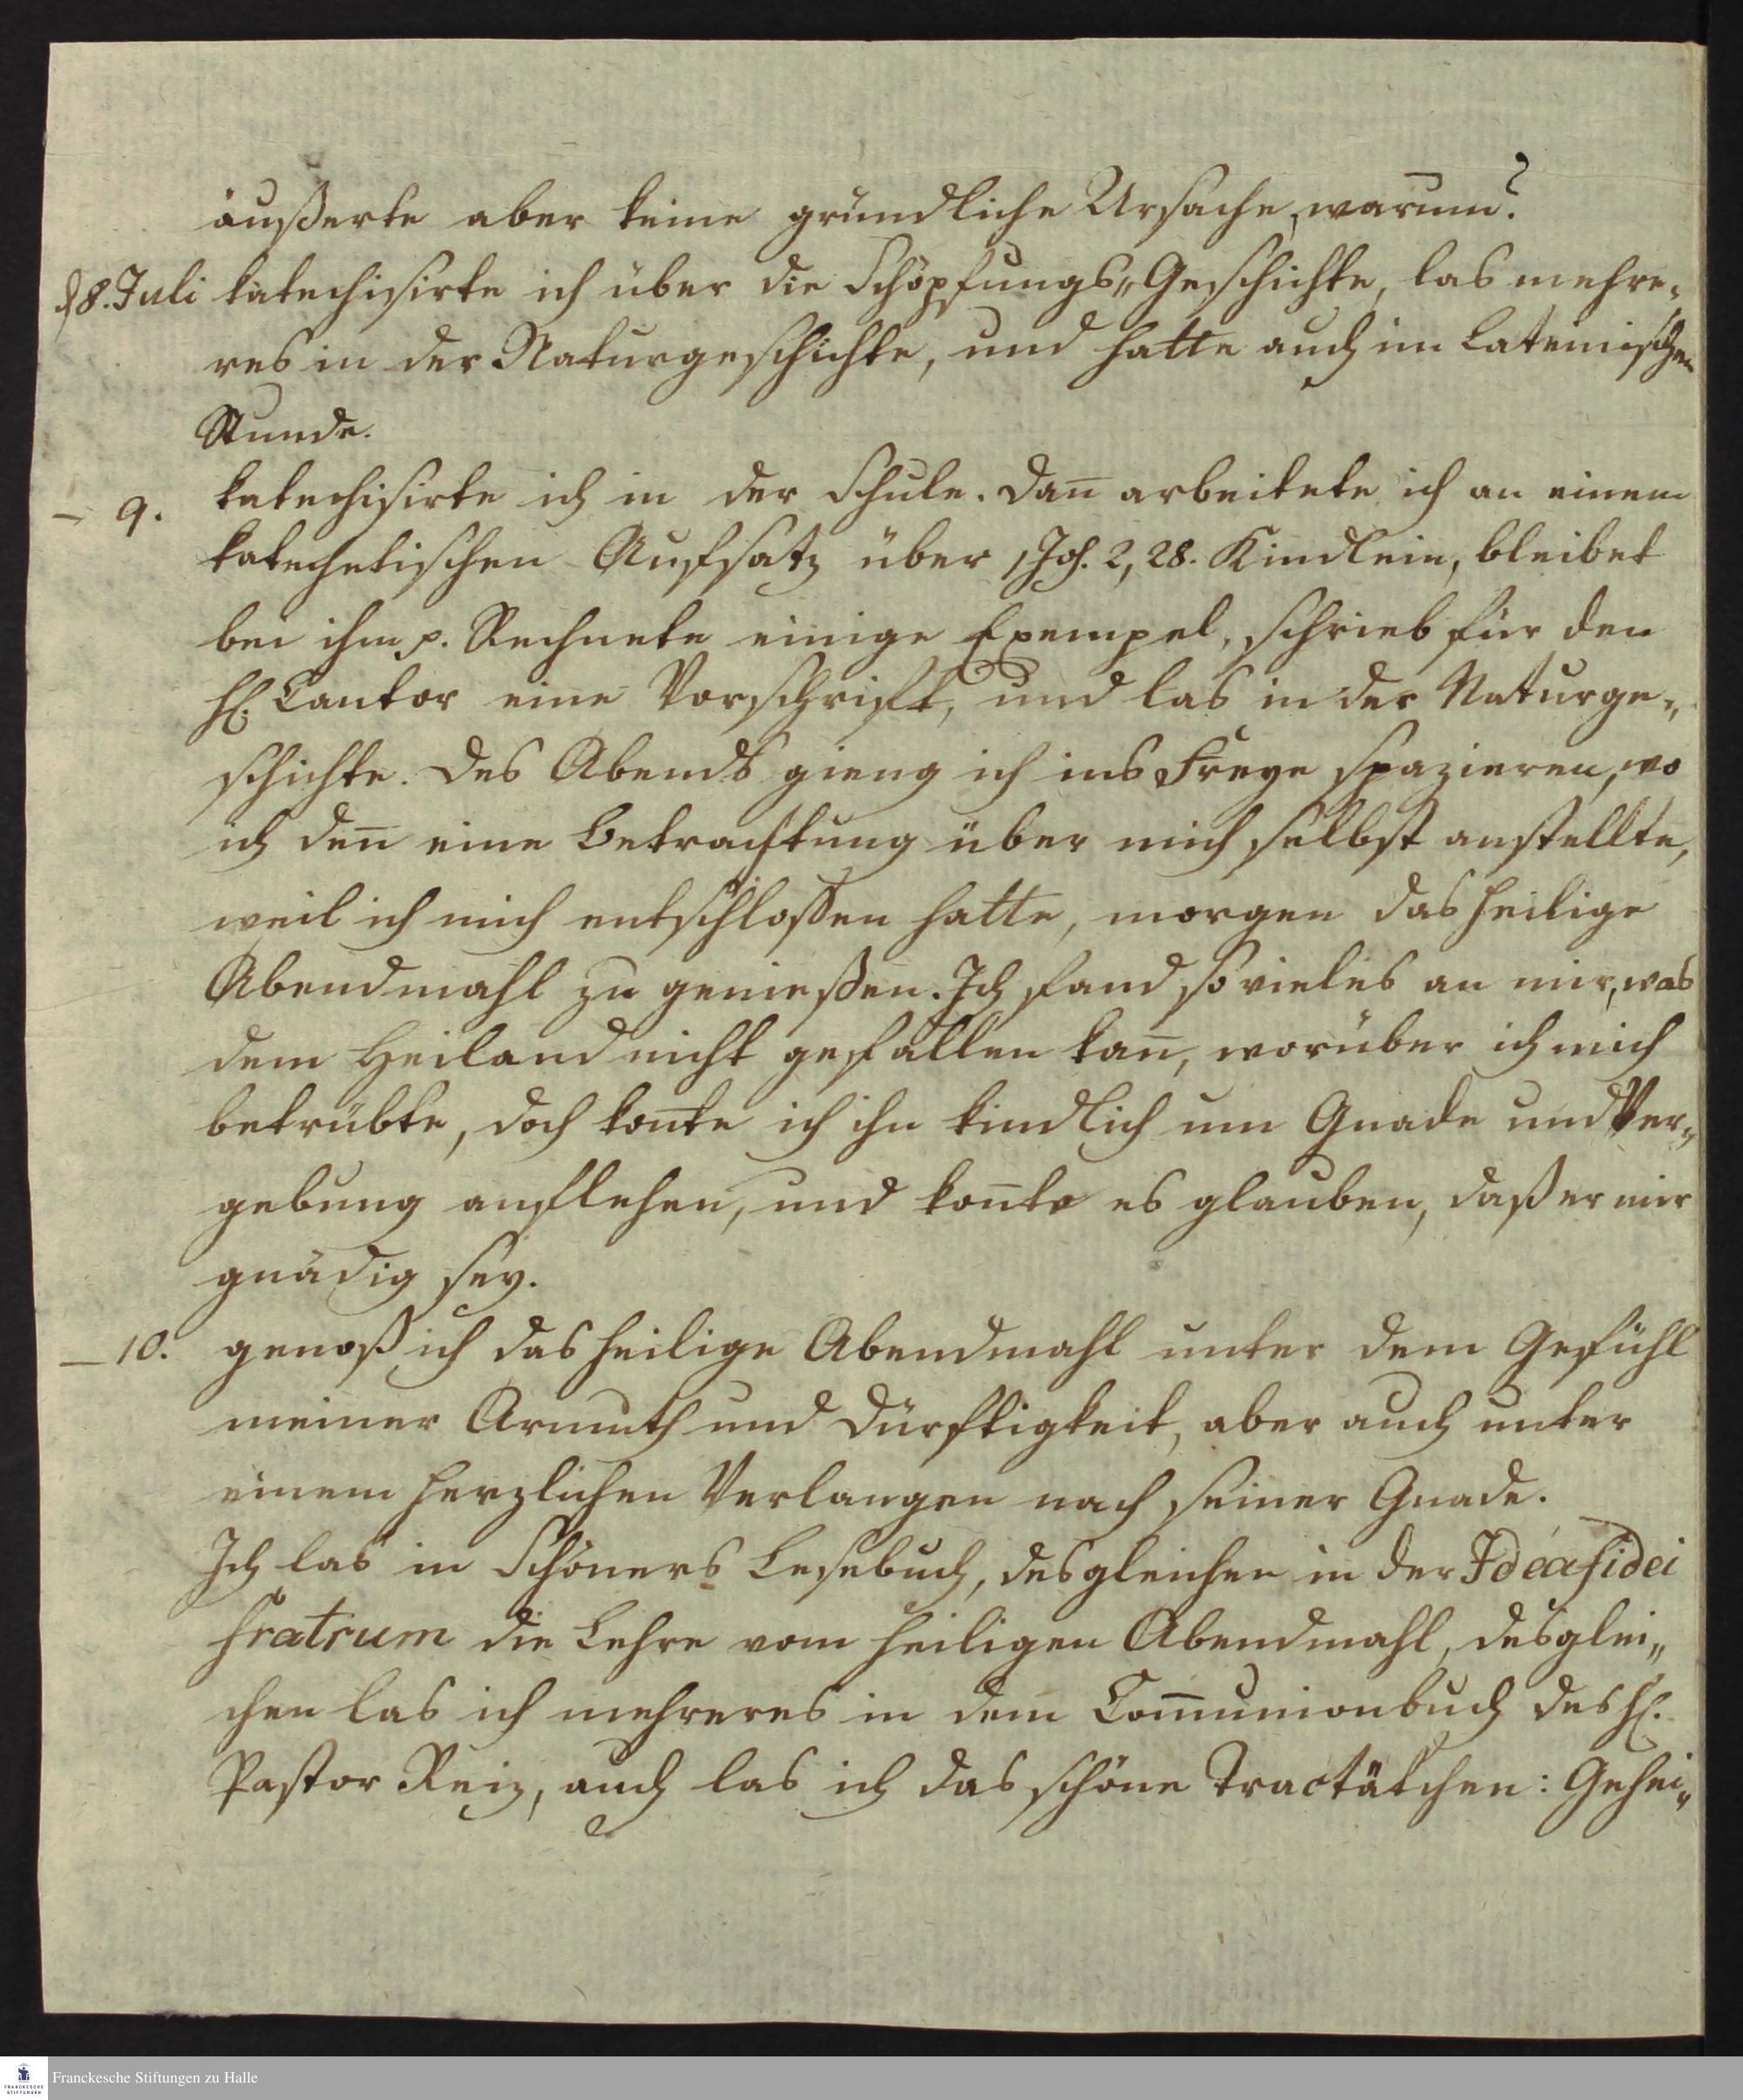 äußerte aber keine gründliche Ursache, warum?
d 8. Juli katechisirte ich über die Schöpfungs„Geschichte, las mehre„
res in der Naturgeschichte, und hatte auch im Lateinischen
Stunde.
– 9. katechisirte ich in der Schule. Dan̄ arbeitete ich an einem
katechetischen Aufsatz über 1 Joh. 2, 28. Kindlein, bleibet
bei ihm p. Rechnete einige Exempel, schrieb für den
H. Cantor eine Vorschrift, und las in der Naturge„
schichte. Des Abends gieng ich ins Freye spazieren, wo
ich den̄ eine Betrachtung über mich selbst anstellte,
weil ich mich entschlossen hatte, morgen das heilige
Abendmahl zu genießen. Ich fand so vieles an mir, was
dem Heiland nicht gefallen kan̄, worüber ich mich
betrübte, doch kon̄te ich ihn kindlich um Gnade und Ver„
gebung anflehen, und kon̄te es glauben, daß er mir
gnädig sey.
– 10. genoß ich das heilige Abendmahl unter dem Gefühl
meiner Armuth und Dürftigkeit, aber auch unter
einem herzlichen Verlangen nach seiner Gnade.
Ich las in Schöners Lesebuch, desgleichen in der Idéa fidei
fratrum die Lehre vom heiligen Abendmahl, desglei„
chen las ich mehreres in dem Com̄unionbuch des H.
Pastor Reiz, auch las ich das schöne Tractätchen: Gehei„
Franckesche Stiftungen zu Halle
FRANCKESCHE
STIFTUNGEN